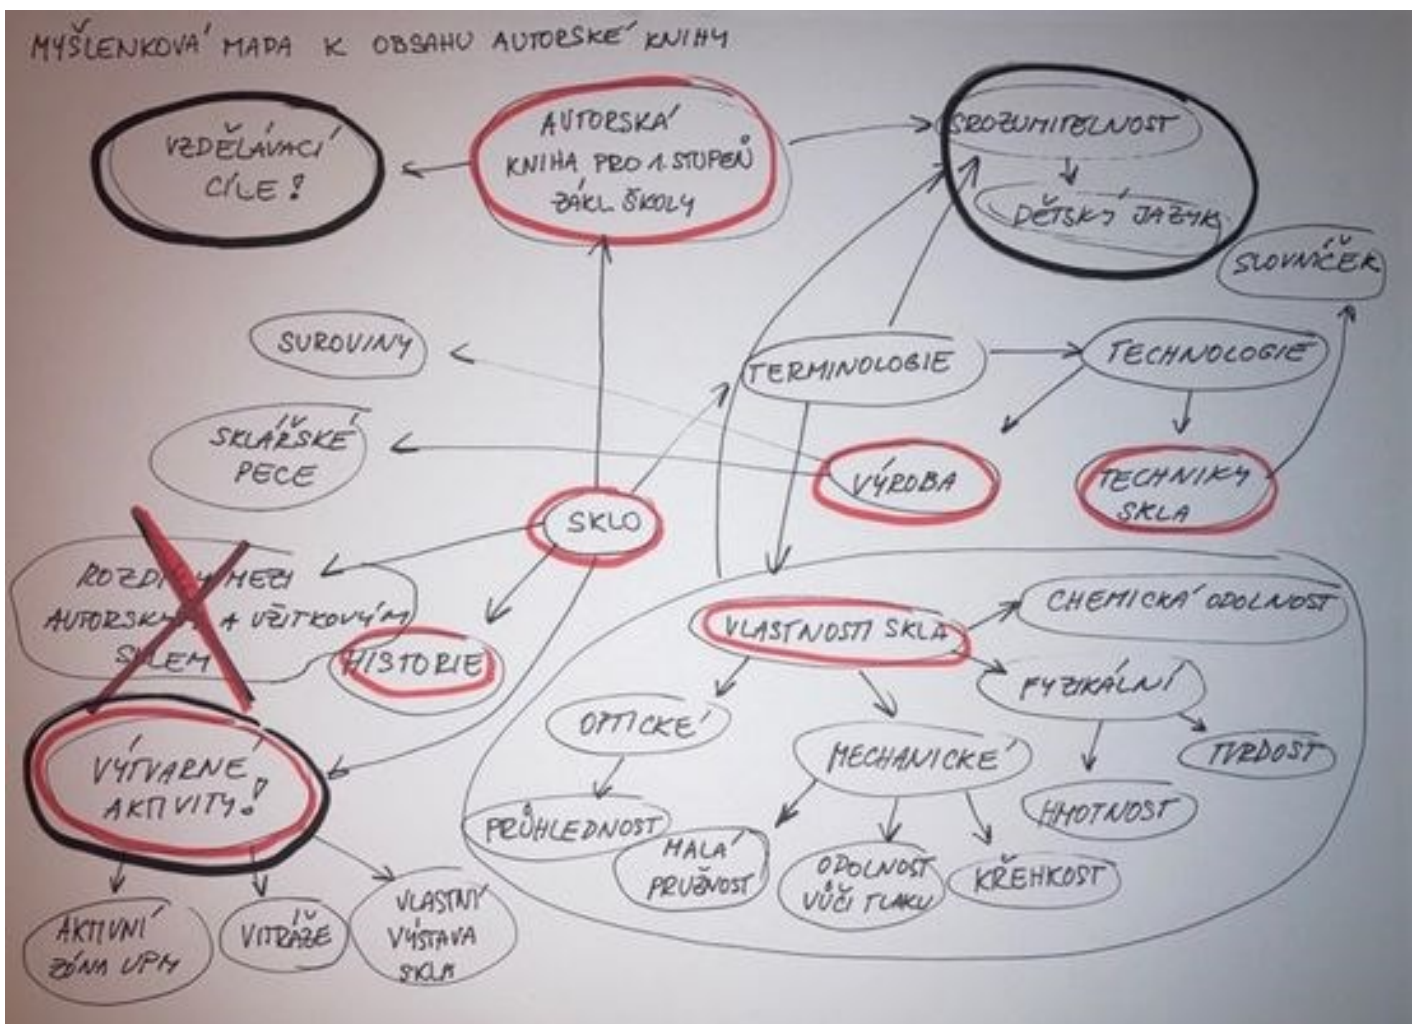 MYŠLENKOVÁ MAPA K OBSAHU AUTORSKÉ KNIHY
VZDĚLÁVACÍ
CÍLE!
AUTORSKÁ
KNIHA PRO 1. STUPEŇ
ZÁKL. ŠKOLY
SROZUMITELNOST
DĚTSKÝ JAZYK
SLOVNÍČEK
SUROVINY
TERMINOLOGIE
TECHNOLOGIE
SKLÁŘSKÉ
PECE
VÝROBA
TECHNIKY
SKLA
SKLO
ROZDÍLY MEZI
AUTORSKÝM A UŽITKOVÝM
SKLEM
HISTORIE
VLASTNOSTI SKLA
CHEMICKÁ ODOLNOST
FYZIKÁLNÍ
OPTICKÉ
MECHANICKÉ
TVRDOST
HMOTNOST
PRŮHLEDNOST
MALÁ
PRUŽNOST
ODOLNOST
VŮČI TLAKU
KŘEHKOST
VÝTVARNÉ
AKTIVITY!
AKTIVNÍ
ZÓNA UPM
VITRÁŽE
VLASTNÍ
VÝSTAVA
SKLA